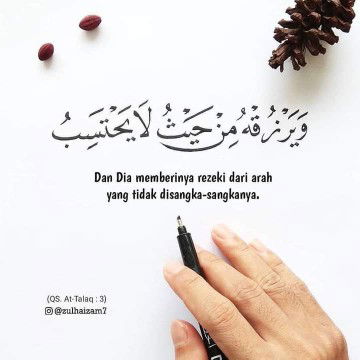 وَيَرْزُقْهُ مِنْ حَيْثُ لَا يَحْتَسِبُ
Dan Dia memberinya rezeki dari arah
yang tidak disangka-sangkanya.
(QS. At-Talaq : 3)
@zulhaizam7